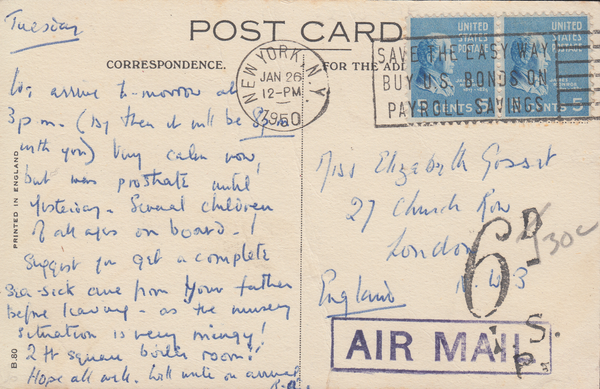 Tuesday
POST CARD
CORRESPONDENCE.
FOR THE AD
NEW YORK, N.Y.
JAN 26
12-PM
1950
SAVE THE EASY WAY
BUY U.S. BONDS ON
PAYROLL SAVINGS
UNITED STATES POSTAGE
UNITED STATES POSTAGE
CENTS 5
CENTS 5
We arrive to-morrow at
3 p.m. (By then it will be 8 p.m
with you) Very calm now,
but was prostrate until
yesterday. Several children
of all ages on board!
Suggest you get a complete
sea-sick cure from your father
before leaving - as the nursery
situation is very mingy!
2 ft square boiler room!!
Hope all well. Will write on arrival
PRINTED IN ENGLAND
B.80
Miss Elizabeth Gosset
27 Church Row
London
N.W.3
England
6D
30c
AIR MAIL